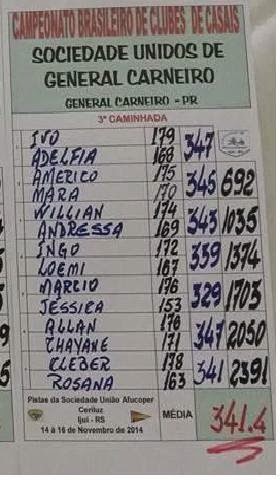 CAMPEONATO BRASILEIRO DE CLUBES DE CASAIS
SOCIEDADE UNIDOS DE
GENERAL CARNEIRO
GENERAL CARNEIRO - PR
3ª CAMINHADA
IVO 179 347
ADELFIA 168
AMERICO 175 345 692
MARA 170
WILLIAN 174 343 1035
ANDRESSA 169
INGO 172 339 1374
LOEMI 167
MARCIO 176 329 1703
JÉSSICA 153
ALLAN 176 347 2050
CHAYANE 171
CLEBER 178 341 2391
ROSANA 163
Pistas da Sociedade União Afucoper
Ceriluz
Ijuí - RS
14 à 16 de Novembro de 2014
MÉDIA 341.4